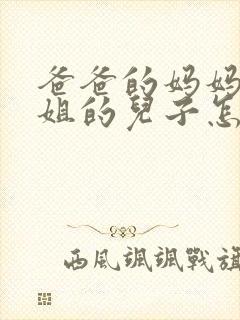 爸爸的妈妈
姐的兒子怎
西風颯颯戰旗